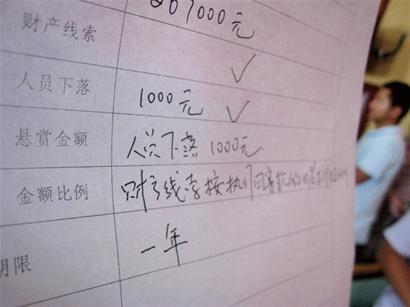 财产线索 ✓
人员下落 1000元 ✓
悬赏金额 人员下落1000元
金额比例 财产线索按执行回
期限 一年